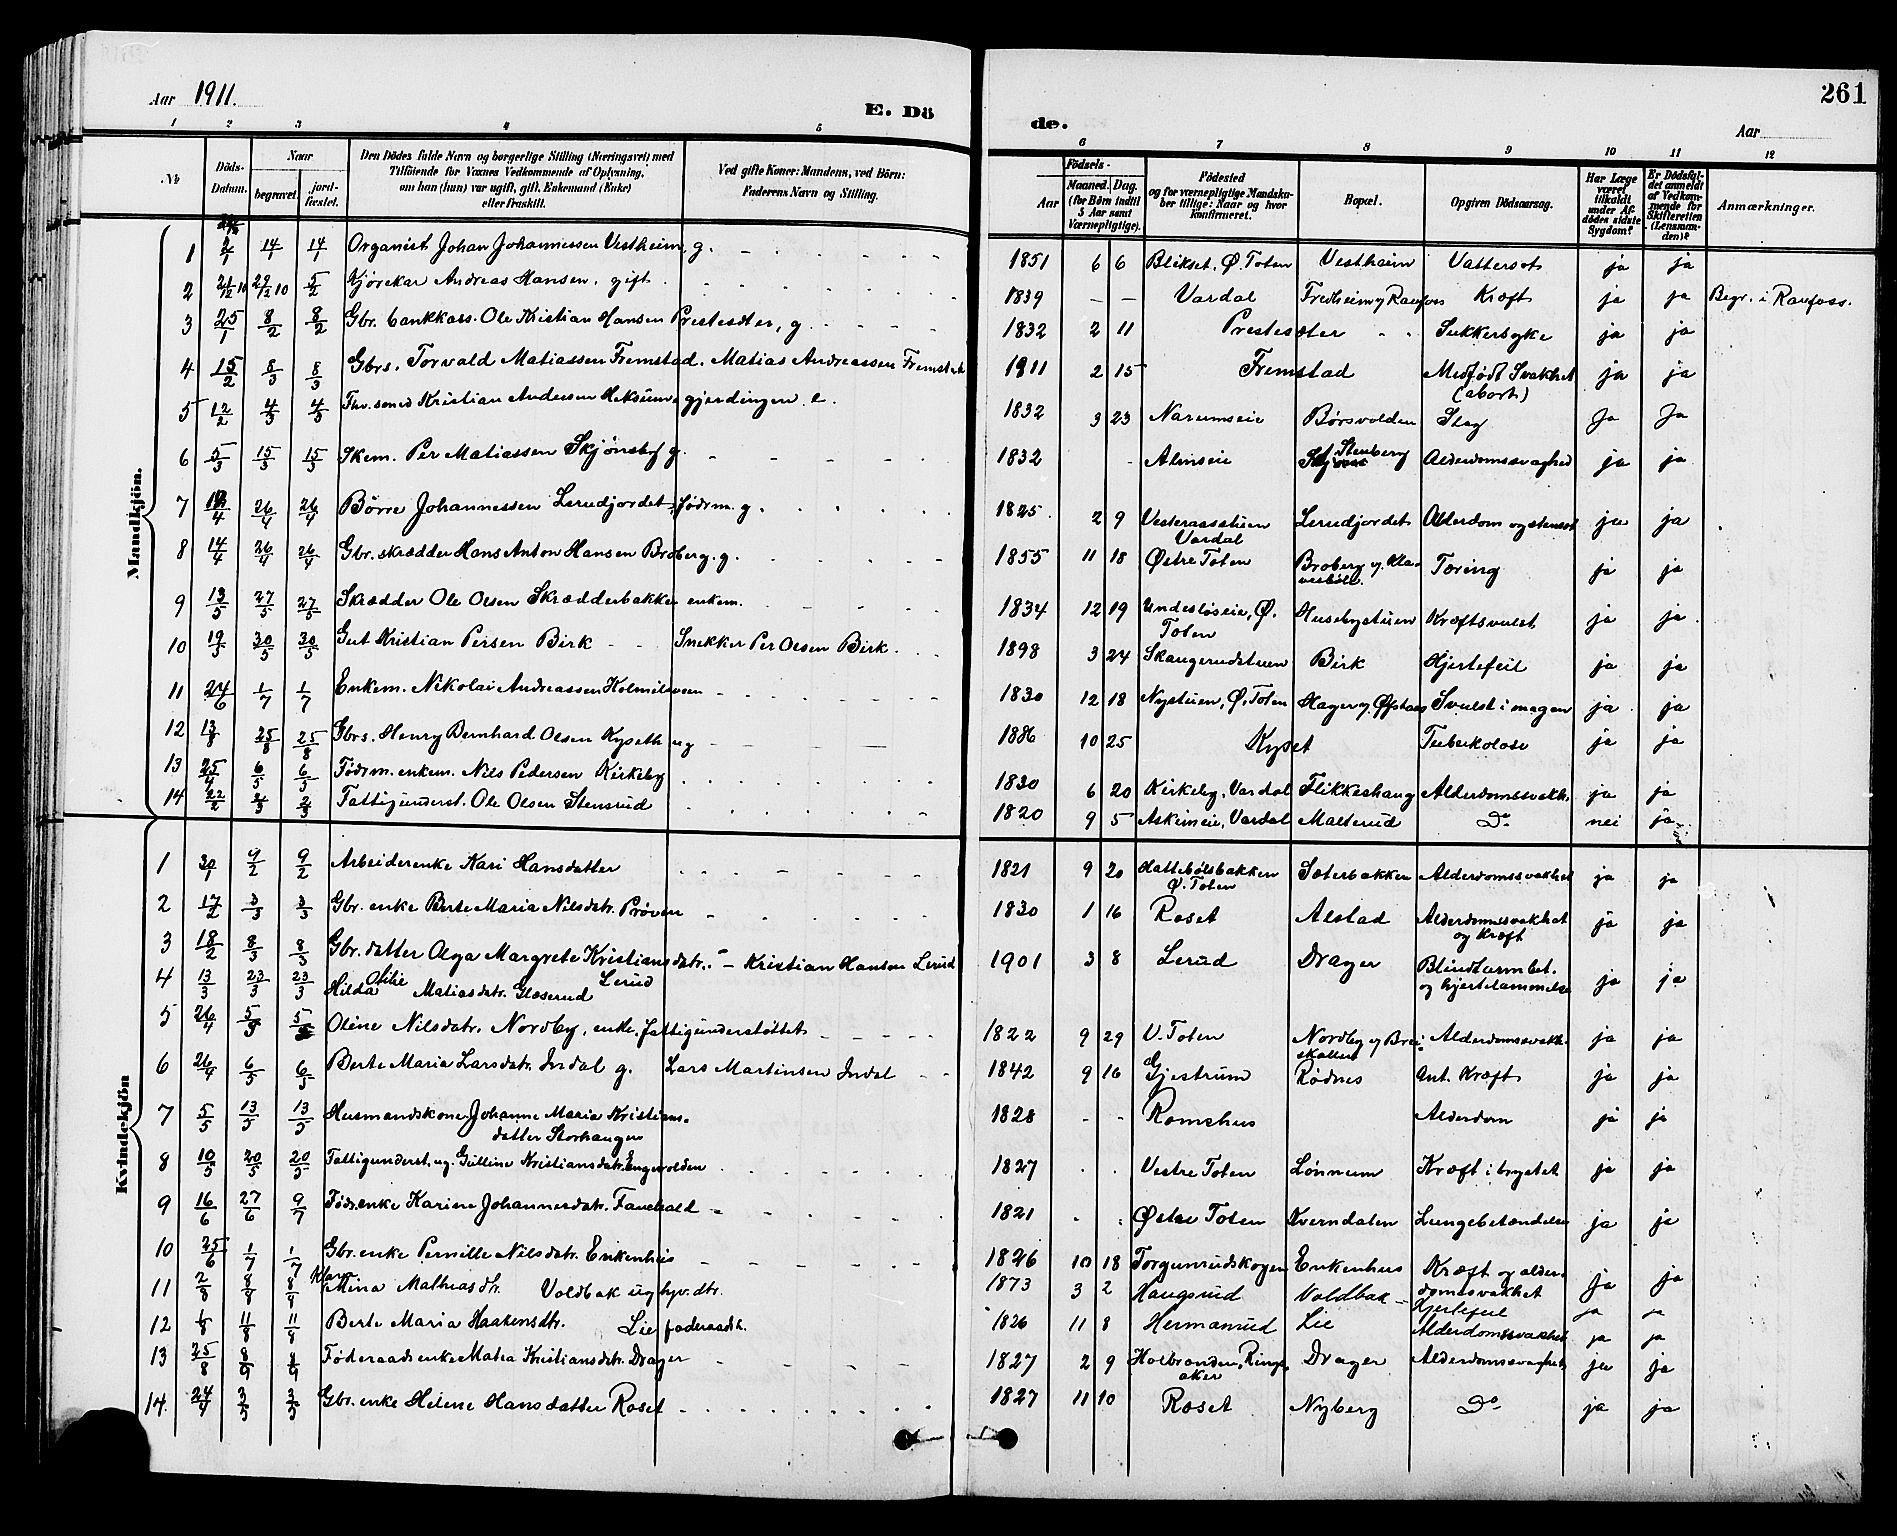 Aar 1911.
E. Dö
de.
261
Aar
1 2 3 4 5 6 7 8 9 10 11 12
No
Döds-Datum.
Naar
begravet. jord-fæstet.
Den Dödes fulde Navn og borgerlige Stilling (Næringsvei) med Tilföiende for Voxnes Vedkommende af Oplysning, om han (hun) var ugift, gift, Enkemand (Enke) eller fraskilt.
Ved gifte Koner: Mandens, ved Börn: Faderens Navn og Stilling.
Födsels-
Aar Maaned. Dag.
(for Börn indtil 5 Aar samt Værnepligtige).
Födested og for værnepligtige Mandskaber tillige: Naar og hvor konfirmeret.
Bopæl.
Opgiven Dödsaarsag.
Har Læge været tilkaldt under Afdödes sidste Sygdom?
Er Dödsfaldet anmeldt af Vedkommende for Skifteretten (Lensmanden)?
Anmærkninger.
Mandkjön.
1 2/1 14/1 14/1 Organist Johan Johannessen Vestheim, g. 1851 6 6 Blikset, Ø. Toten Vestheim Vattersot ja ja
2 21/12 10 29/12 10 5/2 Kjørekar Andreas Hansen. gift. 1839 - - Vardal Fredheim y Raufoss Kræft ja ja Begr. i Raufoss.
3 25/1 8/2 8/2 Gbr. bankkass. Ole Kristian Hansen Prestesæter, g. 1832 2 11 Prestesæter Sukkersyke ja ja
4 15/2 8/3 8/3 Gbrs. Torvald Matiassen Fremstad. Matias Andreassen Fremstad 1911 2 15 Fremstad Medfødt Svakhet (abort) ja ja
5 12/2 4/3 4/3 Kristian Andersen gjerdingen. e. 1832 3 23 Narumseie Børsvolden Slag Ja Ja
6 5/3 15/3 15/3 Skom. Per Matiassen Skjønsby g. 1832 - Almseie Stenberg Alderdomssvaghed ja ja
7 /4 26/4 26/4 Børre Johannessen Lerudjordet, fødrm. g. 1825 2 9 Vesteraasstuen Vardal Lerudjordet Alderdom og ja ja
8 14/4 26/4 26/4 Gbr. skrædder Hans Anton Hansen Broberg. g. 1855 11 18 Østre Toten Broberg y. Tæring ja ja
9 13/5 27/5 27/5 Skrædder Ole Olsen Skrædderbakken enkem. 1834 12 19 Undesløseie, Ø. Toten Husebystuen Kræftsvulst ja ja
10 19/5 30/5 30/5 Gut Kristian Persen Birk Snekker Per Olsen Birk 1898 3 24 Skaugerudstuen Birk Hjertefeil ja ja
11 24/6 1/7 1/7 Enkem. Nikolai Andreassen Holmilsveen 1830 12 18 Nystuen, Ø. Toten Hager y. Øfstaas Svulst i magen ja ja
12 13/8 25/8 25/8 Gbrs. Henry Bernhard Olsen Kyseth ug 1886 10 25 Kyset Tuberkolose ja ja
13 25/4 6/5 6/5 Fødrm. enkem. Nils Pedersen Kirkeby 1830 6 20 Kirkeby, Vardal Flikkeshaug Alderdomssvakh. ja ja
14 22/2 2/3 2/3 Fattigunderst. Ole Olsen Stensrud 1820 9 5 Askimeie, Vardal Malterud Do nei ja
Kvindekjön
1 30/1 9/2 9/2 Arbeiderenke Kari Hansdatter 1821 9 20 Hattebølsbakken Ø. Toten Sæterbakken Alderdomssvakhet ja ja
2 17/2 3/3 3/3 Gbr. enke Berte Maria Nilsdatr. Prøven 1830 1 16 Roset Alstad Alderdomssvakhet og Kræft ja ja
3 18/2 8/3 8/3 Gbr. datter Olga Margrete Kristiansdatr. Lerud Kristian Hansen Lerud 1901 3 8 Lerud Drager Blindtarmbet. og hjertelammelse ja ja
4 13/3 23/3 23/3 Hilda Otilie Matiasdatr. Glæserud
5 26/4 5/5 5/5 Oline Nilsdatr. Nordby, enke, fattigunderstøttet 1822 9 29 V. Toten Nordby y Breiskallen Alderdomssvakh. ja ja
6 26/4 6/5 6/5 Berte Maria Larsdatr. Indal g. Lars Martinsen Indal 1842 9 16 Gjestrum Rødnes Ant. Kræft ja ja
7 5/5 13/5 13/5 Husmandskone Johanne Maria Kristiansdatter Storhaugen 1828 - - Romshus Alderdom ja ja
8 10/5 20/5 20/5 Fattigunderst. ug. Gulline Kristiansdatr. Engevolden 1827 Vestre Toten Lønnum Kræft i brystet ja ja
9 16/6 27/6 9/7 Fødr. enke Karine Johannesdatr. Fauchald 1821 Østre Toten Kverndalen Lungebetændelse ja ja
10 25/6 1/7 1/7 Gbr. enke Pernille Nilsdatr. Enkenhus 1826 10 18 Torgunrudskogen Enkenhus Kræft og alderdomssvakhet ja ja
11 2/8 8/8 8/8 Klara Mina Mathiasdtr. Voldbak ug hjv. dtr. 1873 3 2 Haugsrud Voldbak Hjertefeil ja ja
12 1/8 11/8 11/8 Berte Maria Haakensdtr. Lie føderaadk. 1826 11 8 Hermanrud Lie Alderdomssvakhet ja ja
13 25/8 8/9 8/9 Føderaadsenke Matea Kristiansdatr. Drager 1827 2 9 Holbranden, Ringsaker Drager Alderdomssvaghet ja ja
14. 24/4 3/5 3/5 Gbr. enke Helene Hansdatter Roset 1827 11 10 Roset Nyberg Do ja ja